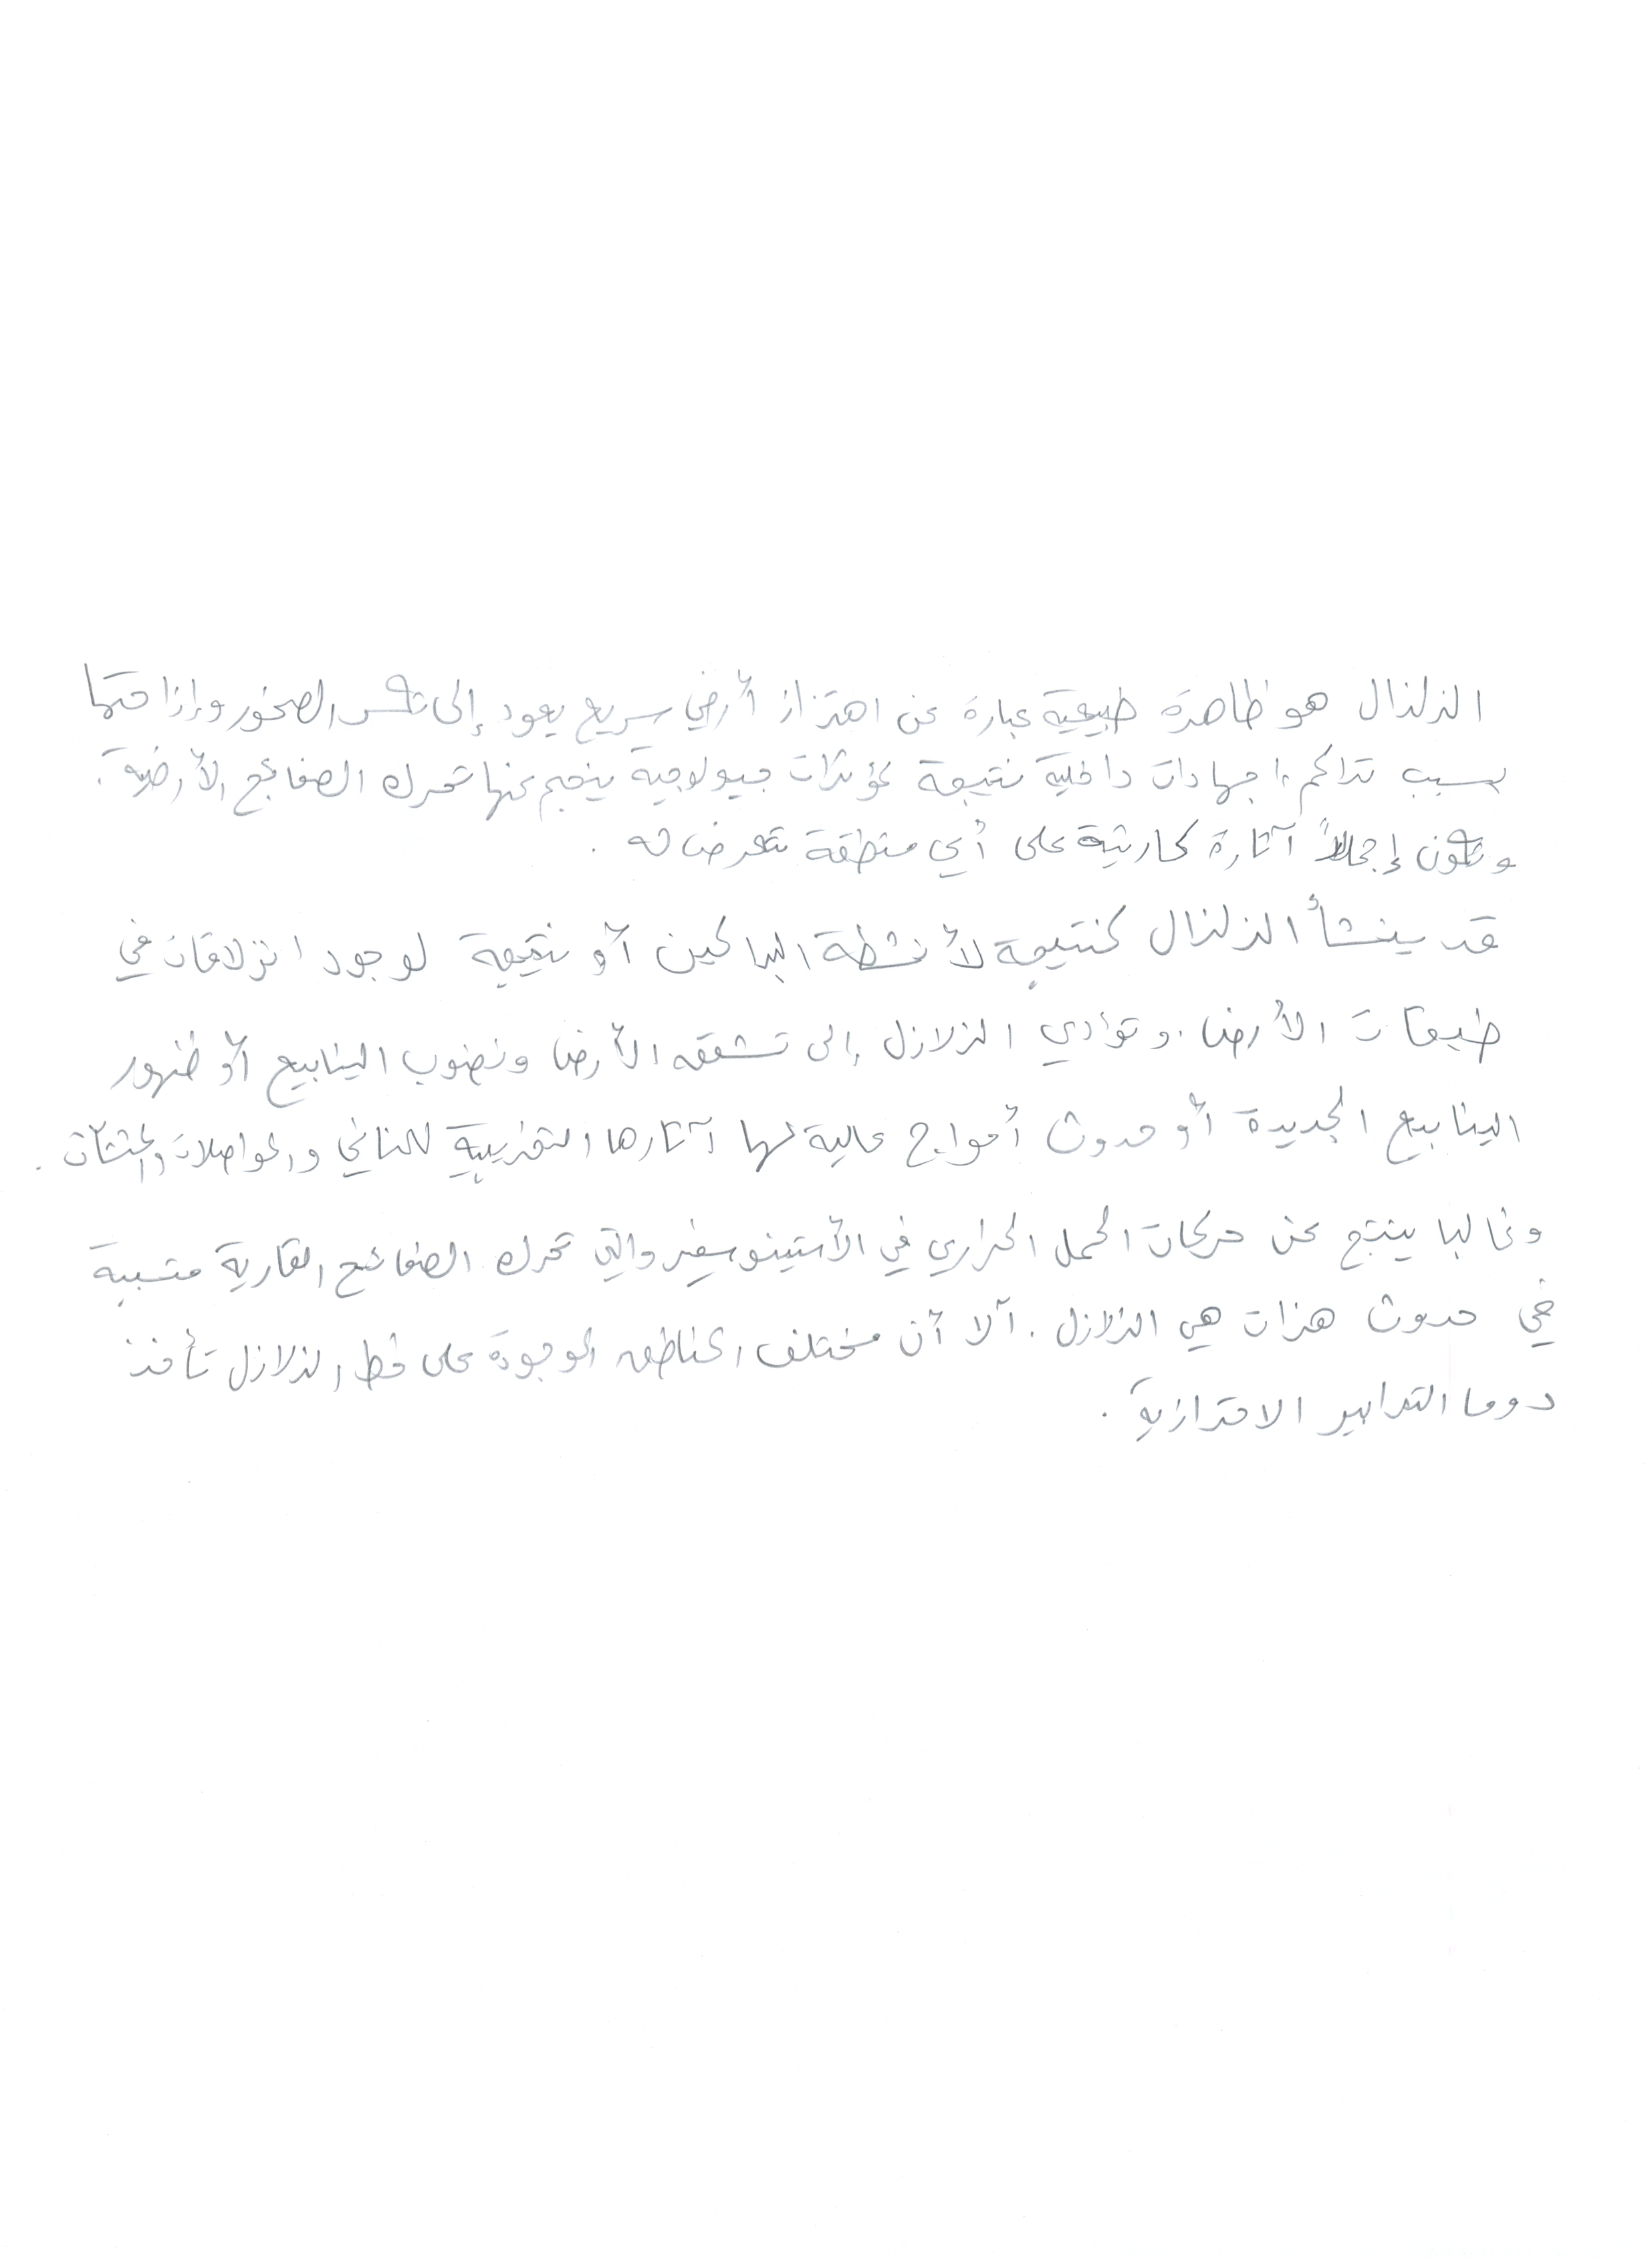 الزلزال هو ظاهرة طبيعية عبارة عن اهتزاز أرضي سريع يعود إلى تكسر الصخور وإزاحتها
بسبب تراكم اجهادات داخلية نتيجة لمؤثرات جيولوجية ينجم عنها تحرك الصفائح الأرضية.
وتكون إجمالاً آثارة كارثية على أي منطقة تتعرض له .
قد ينشأ الزلزال كنتيجة لأنشطة البراكين أو نتيجة لوجود انزلاقات في
طبقات الأرض . وتؤدي الزلازل إلى تشقق الأرض ونضوب الينابيع أو ظهور
الينابيع الجديدة أو حدوث أمواج عالية لها آثارها التخريبية للمباني والمواصلات والمنشآت .
وغالبا ينتج عن حركات الحمل الحراري في الأستينوسفير والتي تحرك الصفائح القارية متسببة
في حدوث هزات هي الزلازل . ألا أن مختلف المناطق الموجودة على خط الزلازل تأخذ
دوما التدابير الاحترازية .